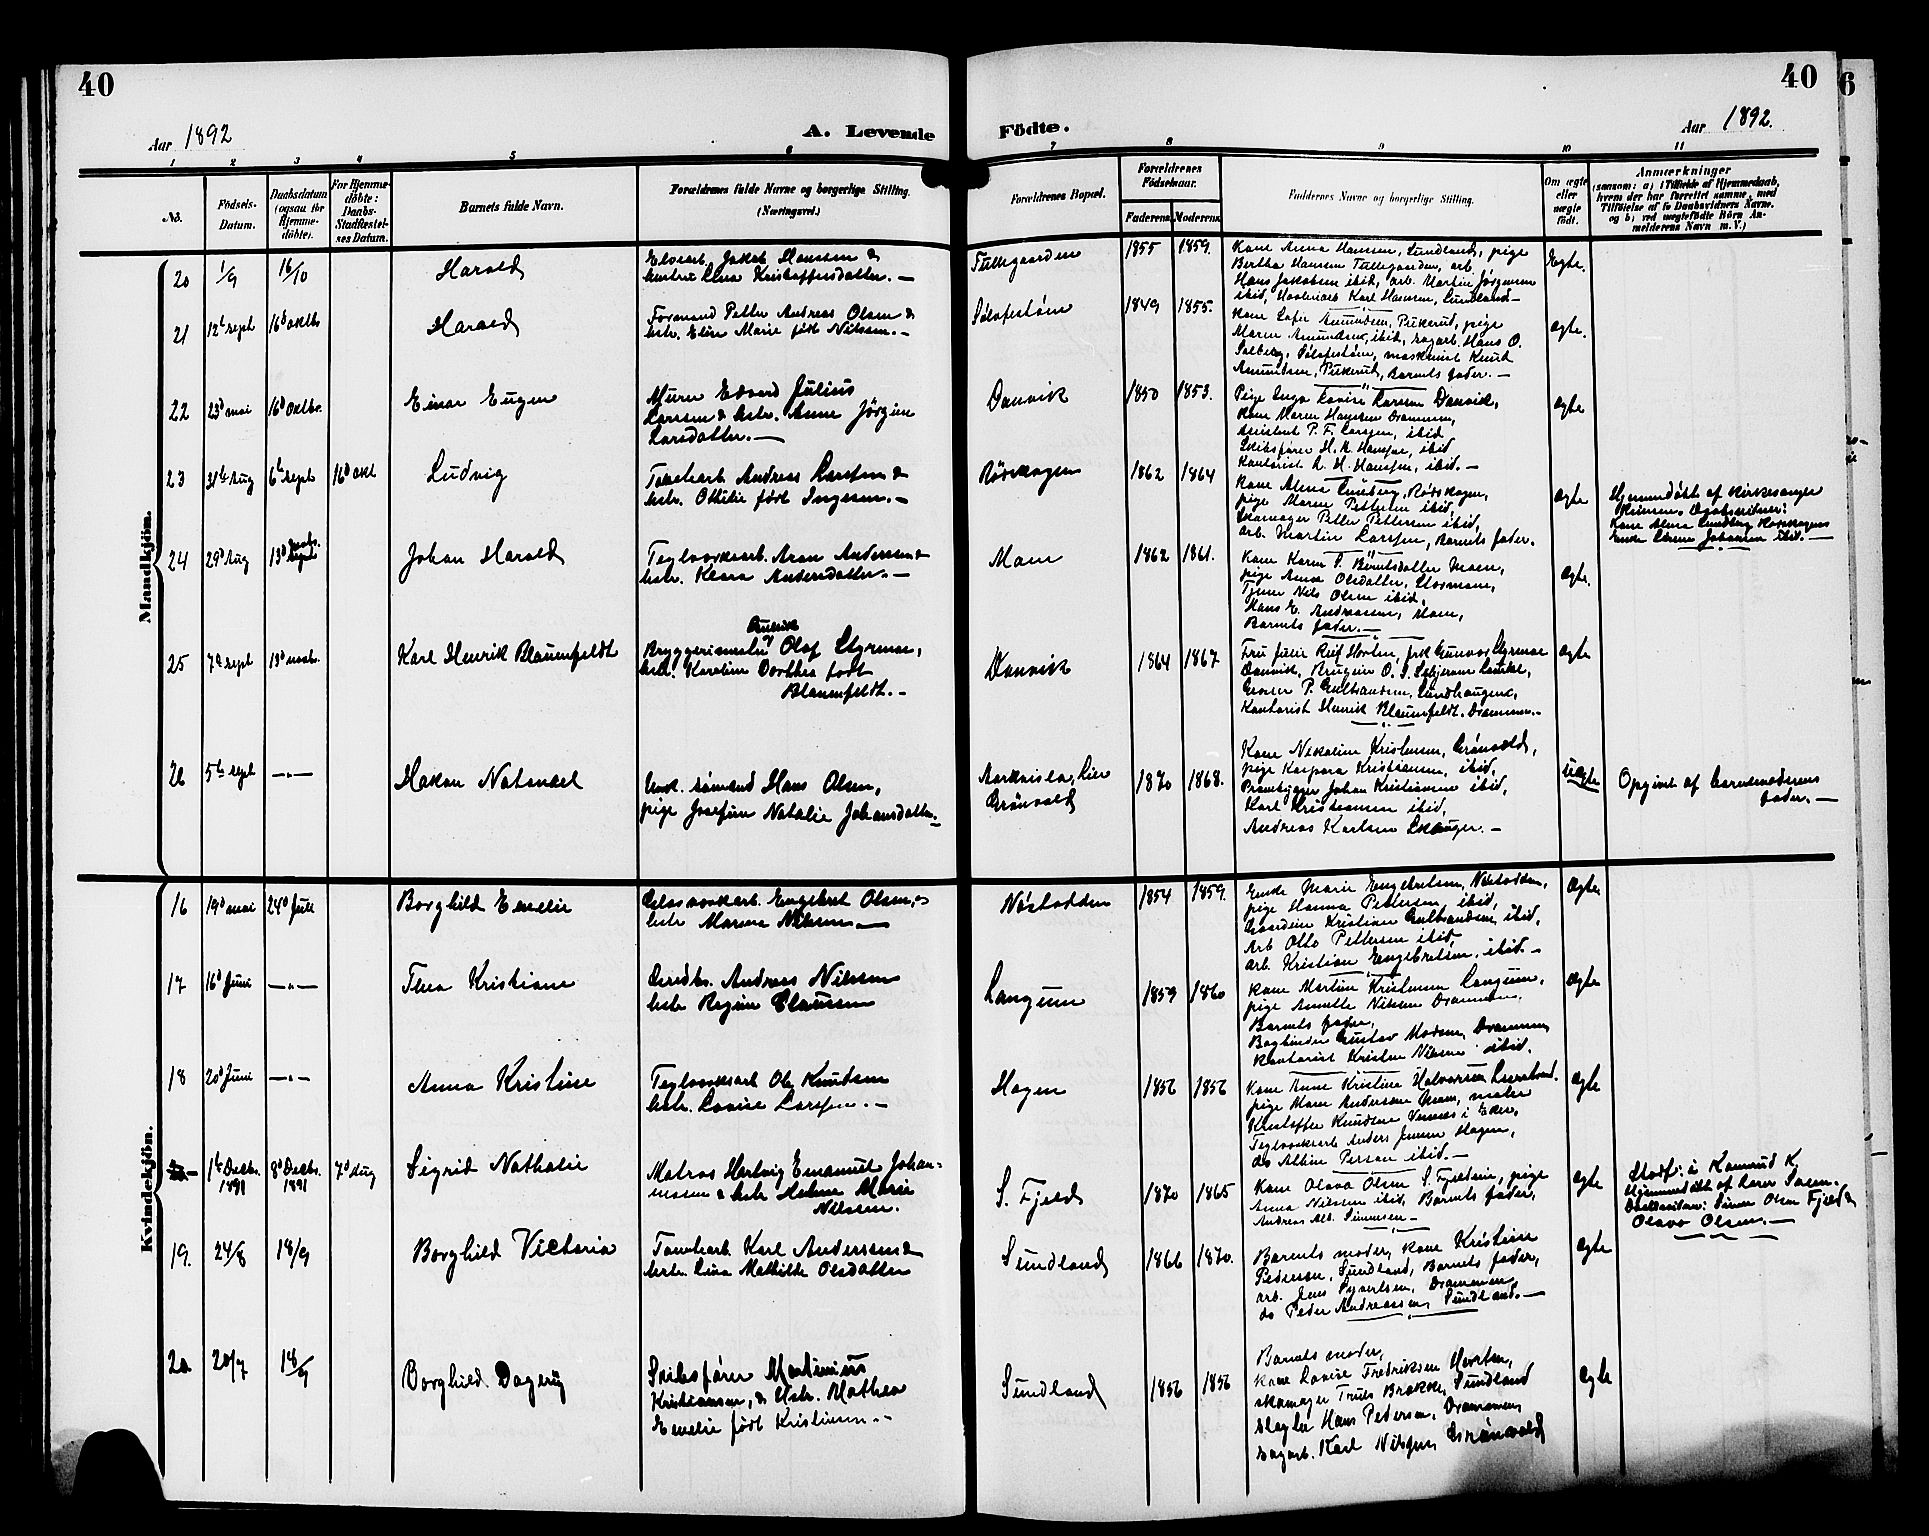 40
40
6
Aar 1892
A. Levende
Födte.
Aar 1892.
1 2 3 4 5 6 7 8 9 10 11
No.
Födsels-
Datum.
Daabsdatum
(ogsaa for
Hjemme-
döbte).
For Hjemme-
döbte:
Daabs-
Stadfæstel-
ses Datum.
Barnets fulde Navn.
Forældrenes fulde Navne og borgerlige Stilling.
(Næringsvei.)
Forældrenes Bopæl.
Forældrenes
Födselsaar.
Faderens. Moderens.
Faddernes Navne og borgerlige Stilling.
Om ægte
eller
uægte
födt.
Anmærkninger
(saasom: a) i Tilfælde af Hjemmedaab,
hvem der har forrettet samme, med
Tilföielse af to Daabsvidners Navne,
og b) ved uægtefödte Börn An-
melderens Navn m. V.)
Mandkjön.
20 1/9 16/10 Harald
Elvearb. Jakob Hansen &
hustru Lina Kristoffersdatter. —
Tullegaarden 1855 1859.
Kone Anna Hansen, Sundland, pige
Bertha Hansen Tullegaarden, arb.
Hans Jakobsen ibid, arb. Martin Jørgensen
ibid, Karl Hansen, Sundland —
Egte.
21 12t sept 16d oktb. Harald
Formand Petter Andreas Olsen &
hstr. Eline Marie født Nilsen. —
Sølvfestøen 1849 1855.
Kone Amundsen, Pukerud, pige
Maren Amundsen, ibid, sagarb. Hans O.
Solberg, Sølvfestøen, maskinist Knut
Amundsen, Pukerud, Barnets fader. —
Ægte.
22 23d mai 16d oktbr. Einar Eugen
Murer Edvard Julius
Larsen & hstr. Anne Jörgine
Larsdatter. —
Danvik 1850 1853.
Pige Inga Lovise Larsen Danvik,
Kone Maren Hansen Drammen,
Assistent P. F. Larsen, ibid
Skibsfører H. K. Hansen, ibid
Kontorist L. H. Hansen, ibid. —
Ægte
23 31te Aug 6te sept 16d okt Ludvig
Tomtearb. Andreas Larsen &
hstr. Othilie født Ingesen. —
Rødskogen 1862 1864
Kone Alma Lundberg, Rødskogen,
pige Maren Pettersen ibid,
skomager Petter Pettersen ibid,
arb. Martin Larsen, Barnets fader.
Ægte
Hjemmedøbt af kirkesanger
Heimen. Daabsvidner:
Kone Alma Lundberg Rødskogen
Enke Johansen ibid. —
24 29d Aug 13d Johan Harald
Teglværksarb. Aron Andersen &
hstr. Klara Andersdatter. —
Moen 1862 1861.
Kone Karen P. Berntsdatter Moen,
pige Anna Olsdatter, Stormoen,
Tjener Nils Olsen ibid,
Hans E. Andreassen, Moen,
Barnets fader. —
Ægte.
25 7d sept 13d Karl Henrik Blauenfeldt
Bryggerimester Olaf Styrmoe,
hstr. Karoline Dorthea født
Blauenfeldt. —
Danvik 1864 1867
Fru Julie Horten, frk Gunvor Styrmoe
Danvik,
Grosser P. Gulbrandsen, Sundhaugen,
Kontorist Henrik Blauenfeldt, Drammen. —
Ægte
26 5te sept —„— Hakon Natanael
Unk. sømand Hans Olsen,
pige Josefine Natalie Johansdatter.
Lier
Grönvold
1870 1868.
Kone Nikoline Kristensen, Grönvold,
pige Kaspara Kristiansen, ibid,
Johan Kristiansen ibid,
Karl Kristiansen ibid,
Andreas Karlsen Skanger. —
uægte
Opgivet af barnemoderens
fader. —
Kvindekjön.
16 19d mai 24d Juli Borghild Emelie
Glasværksarb. Engebret Olsen &
hstr Marna Nilsen —
Nøstodden 1854 1859.
Enke Marie Engebretsen, Nøstodden,
pige Hanna Pettersen ibid,
Gaardeier Kristian Gulbrandsen, ibid,
Arb Otto Pettersen ibid,
arb. Kristian Engebretsen, ibid. —
Ægte
17 16d Juni —„— Thea Kristiane
Andreas Nilsen
hstr Regine Clausen
Langum 1859 1860
Kone Martin Kristensen Langum,
pige Annette Nilsen Drammen.
Barnets fader,
Bogbinder Gustav Madsen, Drammen
Kontorist Kristen Nilsen ibid.
Ægte
18 20d Juni —„— Anna Kristine
Teglværksarb Ole Knudsen
hstr. Lovise Larsen. —
Hagen 1856 1856
Kone Anne Kristine Halvorsen
pige Marn Andersen Moen, maler
Kristoffer Knudsen i Eker,
Teglværksarb Anders Jensen Hagen,
do Albin Person ibid. —
Ægte
1te Decbr. 1891 8d Decbr. 1891 7d Aug Sigrid Nathalie
Matros Hartvig Emanuel Johan-
nessen & hstr Helene Marie
Nilsen.
S. Fjeld 1870 1865
Kone Olava Olsen S. Fjeldeie, pige
Anna Nilsen ibid, Barnets fader,
Andreas Alb. Simensen —
Ægte
Stadf: i Komnes K.
Hjemmedøbt af Lærer
Daabsvidner: Simen Olsen Fjeld &
Olava Olsen. —
19. 24/8 18/9 Borghild Victoria
Tomtearb. Karl Andersen &
hstr. Lina Mathilde Olsdatter
Sundland 1866 1870.
Barnets moder, kone Kristine
Pedersen, Sundland, Barnets fader,
arb. Jens Syvertsen, Drammen
do Peder Andreassen, Sundland. —
Ægte
20 20/7 18/9 Borghild Dagny
Skibsfører Martinius
Kristiansen, & hstr. Mathea
Emelie født Kristensen. —
Sundland 1856 1856
Barnets moder,
Kone Lovise Fredriksen Horten,
skomager Truls Brække, Sundland
slagter Hans Pedersen, Drammen,
sagarb. Karl Nilsen, Grönvold
Ægte